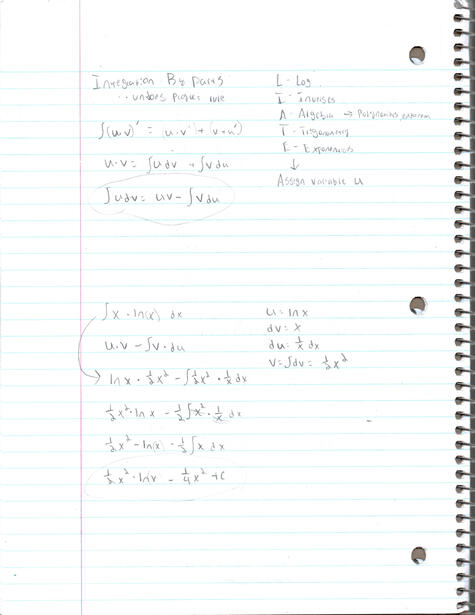 Integration By parts
undoes product rule
∫(u·v)' = (u·v') + (v·u')
u·v = ∫udv + ∫vdu
∫udv = uv - ∫vdu
L - Log
I - Inverses
A - Algebra → Polynomials
T - Trigonometry
E - Exponentials
↓
Assign variable u
∫x·ln(x) dx
u·v - ∫v·du
ln x · ½x² - ∫½x² · 1/x dx
½x²·ln x - ½∫x²·1/x dx
½x² - ln(x) - ½∫x dx
½x²·ln x - ¼x² + C
u = ln x
dv = x
du = 1/x dx
v = ∫dv = ½x²